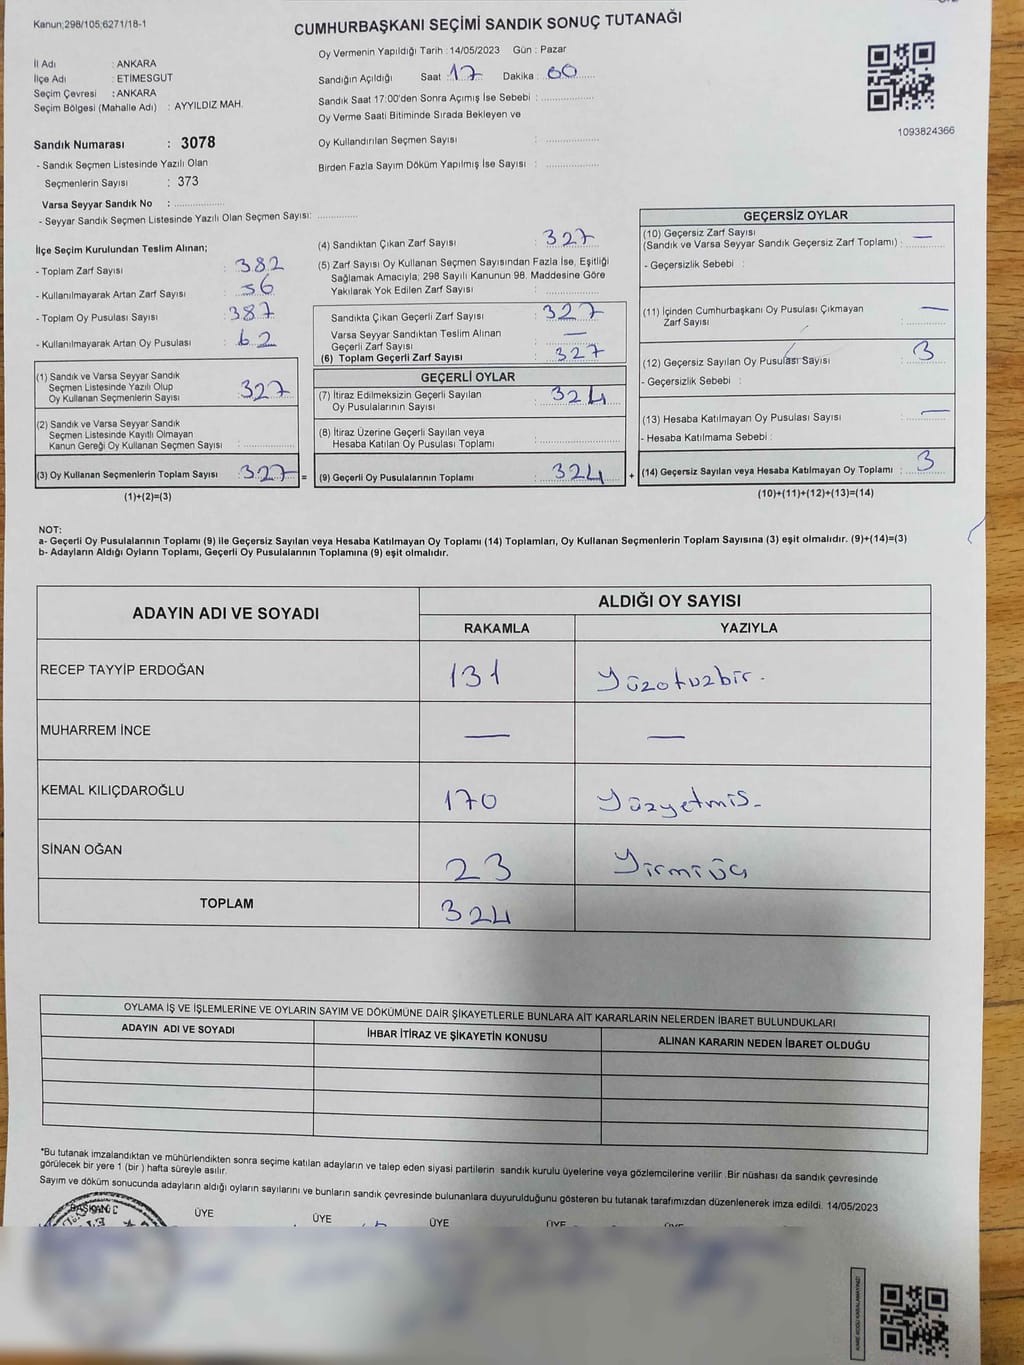 Kanun;298/105;6271/18-1
CUMHURBAŞKANI SEÇİMİ SANDIK SONUÇ TUTANAĞI
İl Adı : ANKARA
İlçe Adı : ETİMESGUT
Seçim Çevresi : ANKARA
Seçim Bölgesi (Mahalle Adı) : AYYILDIZ MAH.
Oy Vermenin Yapıldığı Tarih :14/05/2023 Gün : Pazar
Sandığın Açıldığı Saat : 17 Dakika : 00
Sandık Saat 17:00'den Sonra Açımış İse Sebebi :
Oy Verme Saati Bitiminde Sırada Bekleyen ve
Oy Kullandırılan Seçmen Sayısı :
Birden Fazla Sayım Döküm Yapılmış İse Sayısı :
1093824366
Sandık Numarası : 3078
- Sandık Seçmen Listesinde Yazılı Olan
Seçmenlerin Sayısı : 373
Varsa Seyyar Sandık No :
- Seyyar Sandık Seçmen Listesinde Yazılı Olan Seçmen Sayısı:
İlçe Seçim Kurulundan Teslim Alınan;
- Toplam Zarf Sayısı : 382
- Kullanılmayarak Artan Zarf Sayısı : 56
- Toplam Oy Pusulası Sayısı : 387
- Kullanılmayarak Artan Oy Pusulası : 62
(1) Sandık ve Varsa Seyyar Sandık
Seçmen Listesinde Yazılı Olup
Oy Kullanan Seçmenlerin Sayısı : 327
(2) Sandık ve Varsa Seyyar Sandık
Seçmen Listesinde Kayıtlı Olmayan
Kanun Gereği Oy Kullanan Seçmen Sayısı :
(3) Oy Kullanan Seçmenlerin Toplam Sayısı : 327 =
(1)+(2)=(3)
(4) Sandıktan Çıkan Zarf Sayısı : 327
(5) Zarf Sayısı Oy Kullanan Seçmen Sayısından Fazla İse, Eşitliği
Sağlamak Amacıyla; 298 Sayılı Kanunun 98. Maddesine Göre
Yakılarak Yok Edilen Zarf Sayısı :
Sandıkta Çıkan Geçerli Zarf Sayısı : 327
Varsa Seyyar Sandıktan Teslim Alınan
Geçerli Zarf Sayısı : —
(6) Toplam Geçerli Zarf Sayısı : 327
GEÇERLİ OYLAR
(7) İtiraz Edilmeksizin Geçerli Sayılan
Oy Pusulalarının Sayısı : 324
(8) İtiraz Üzerine Geçerli Sayılan veya
Hesaba Katılan Oy Pusulası Toplamı :
(9) Geçerli Oy Pusulalarının Toplamı : 324 +
GEÇERSİZ OYLAR
(10) Geçersiz Zarf Sayısı
(Sandık ve Varsa Seyyar Sandık Geçersiz Zarf Toplamı) : —
- Geçersizlik Sebebi :
(11) İçinden Cumhurbaşkanı Oy Pusulası Çıkmayan
Zarf Sayısı : —
(12) Geçersiz Sayılan Oy Pusulası Sayısı : 3
- Geçersizlik Sebebi :
(13) Hesaba Katılmayan Oy Pusulası Sayısı : —
- Hesaba Katılmama Sebebi :
(14) Geçersiz Sayılan veya Hesaba Katılmayan Oy Toplamı : 3
(10)+(11)+(12)+(13)=(14)
NOT:
a- Geçerli Oy Pusulalarının Toplamı (9) ile Geçersiz Sayılan veya Hesaba Katılmayan Oy Toplamı (14) Toplamları, Oy Kullanan Seçmenlerin Toplam Sayısına (3) eşit olmalıdır. (9)+(14)=(3)
b- Adayların Aldığı Oyların Toplamı, Geçerli Oy Pusulalarının Toplamına (9) eşit olmalıdır.
ADAYIN ADI VE SOYADI ALDIĞI OY SAYISI
RAKAMLA YAZIYLA
RECEP TAYYİP ERDOĞAN 131 Yüzotuzbir.
MUHARREM İNCE — —
KEMAL KILIÇDAROĞLU 170 Yüzyetmiş
SİNAN OĞAN 23 Yirmiüç
TOPLAM 324
OYLAMA İŞ VE İŞLEMLERİNE VE OYLARIN SAYIM VE DÖKÜMÜNE DAİR ŞİKAYETLERLE BUNLARA AİT KARARLARIN NELERDEN İBARET BULUNDUKLARI
ADAYIN ADI VE SOYADI İHBAR İTİRAZ VE ŞİKAYETİN KONUSU ALINAN KARARIN NEDEN İBARET OLDUĞU
*Bu tutanak imzalandıktan ve mühürlendikten sonra seçime katılan adayların ve talep eden siyasi partilerin sandık kurulu üyelerine veya gözlemcilerine verilir. Bir nüshası da sandık çevresinde
görülecek bir yere 1 (bir ) hafta süreyle asılır.
Sayım ve döküm sonucunda adayların aldığı oyların sayılarını ve bunların sandık çevresinde bulunanlara duyurulduğunu gösteren bu tutanak tarafımızdan düzenlenerek imza edildi. 14/05/2023
BAŞKAN ÜYE ÜYE ÜYE ÜYE ÜYE